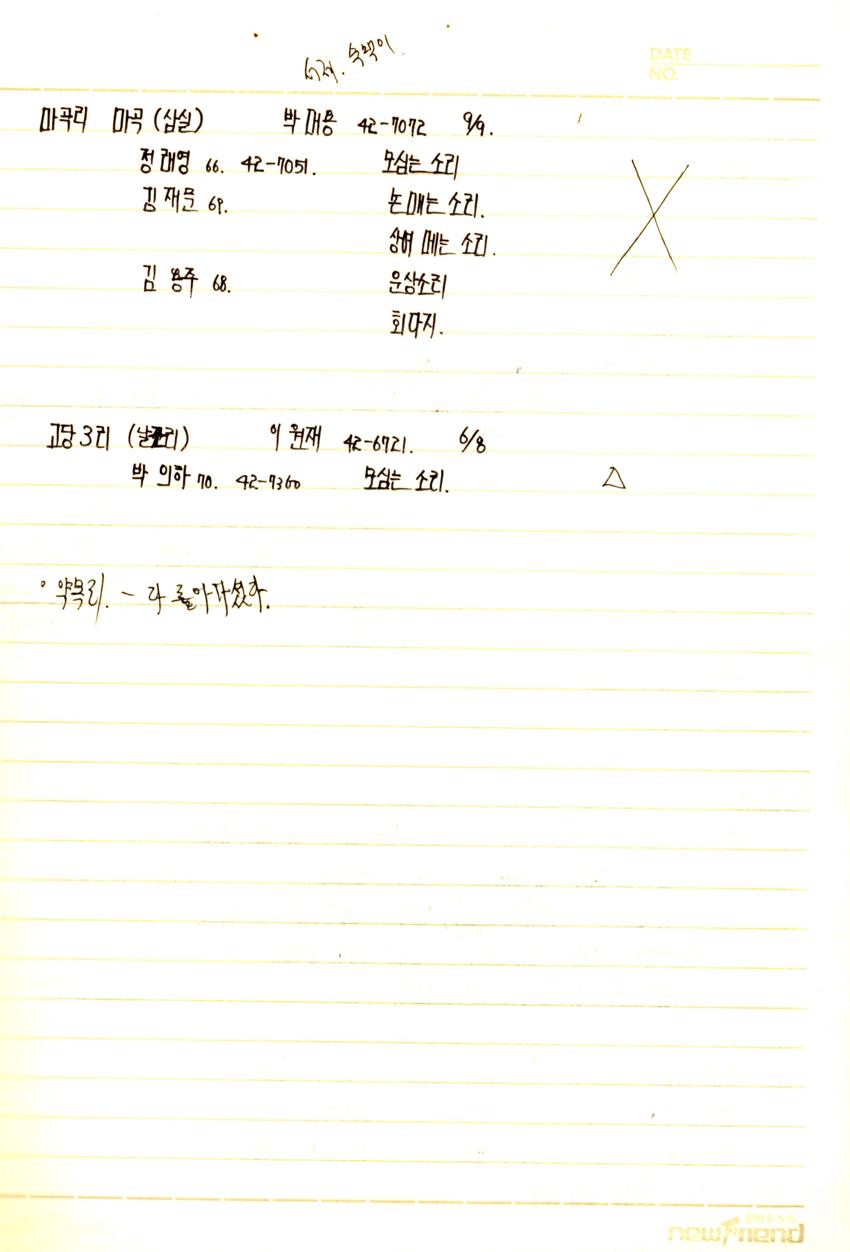 DATE
NO.
마곡리 마곡 (삼실) 박대용 42-7072 9/9.
정래영 66. 42-7051. 모심는 소리
김재문 69. 논매는 소리.
상여 메는 소리.
김용주 68. 운상소리
회다지.
고당3리 ( ) 이원재 42-6721. 6/8
박의하 70. 42-7360 모심는 소리.
약목리. - 다 돌아가셨다.
은하수노트
newfriend